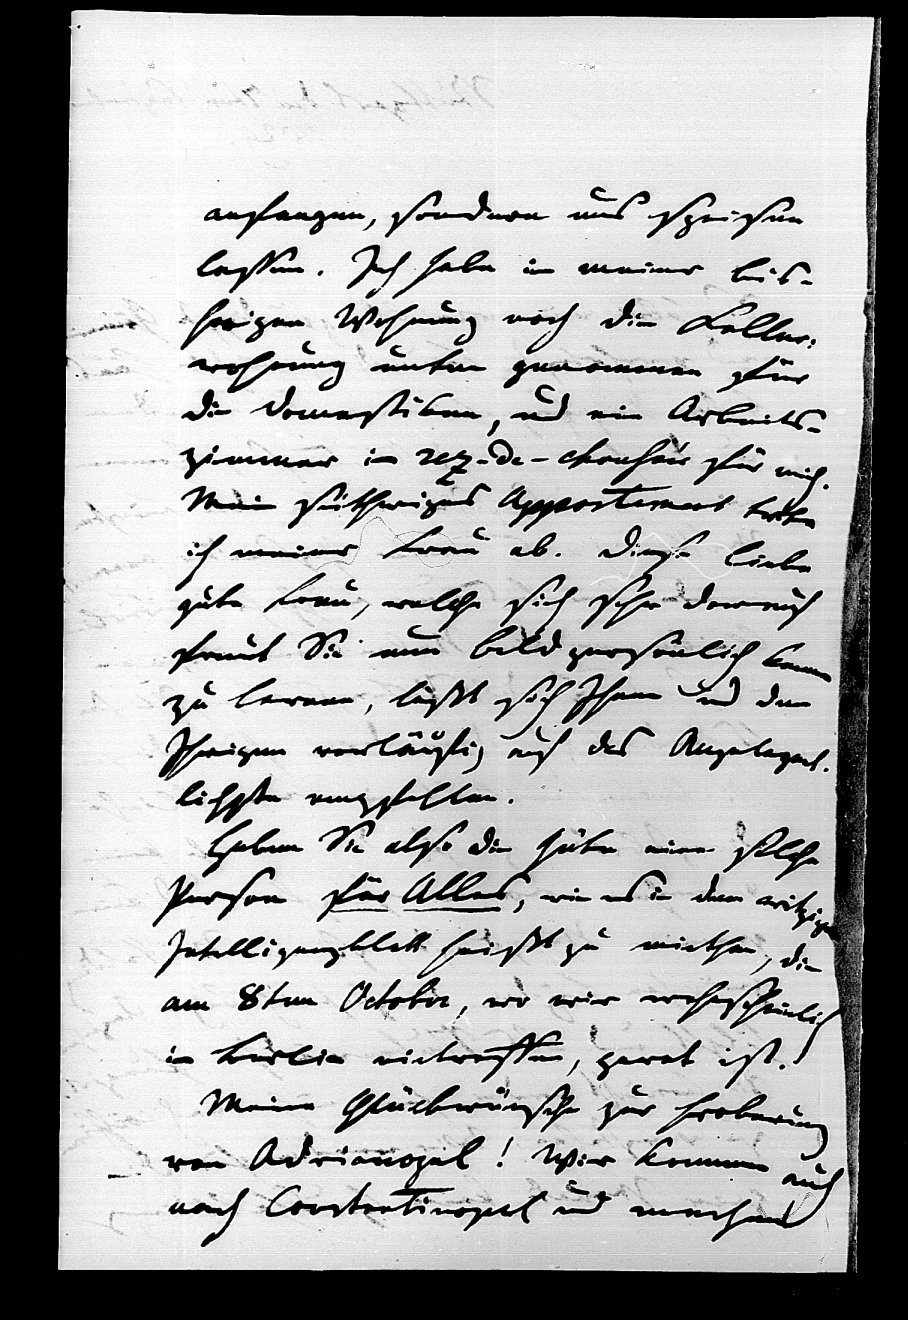 anfangen, sondern uns speisen
lassen. Ich habe in meiner bis-
herigen Wohnung noch die Keller-
wohnung unten genommen für
die Domestiken, und ein Arbeits-
zimmer im rez-de-chaussée für mich.
Mein seitheriges Appartement trete
ich meiner Frau ab. Diese liebe
gute Frau, welche sich sehr darauf
freut Sie nun bald persönlich kennen
zu lernen, läßt sich Ihnen und den
Ihrigen vorläufig auf das Angelegent-
lichste empfehlen.
Haben Sie also die Güte eine solche
Person für Alles, wie es in dem witzigen
Intelligenzblatt heißt zu miethen, die
am 8ten October, wo wir wahrscheinlich
in Berlin eintreffen, parat ist.
Meine Glückwünsche zur Eroberung
von Adrianopel! Wir kommen auch
nach Constantinopel und machen